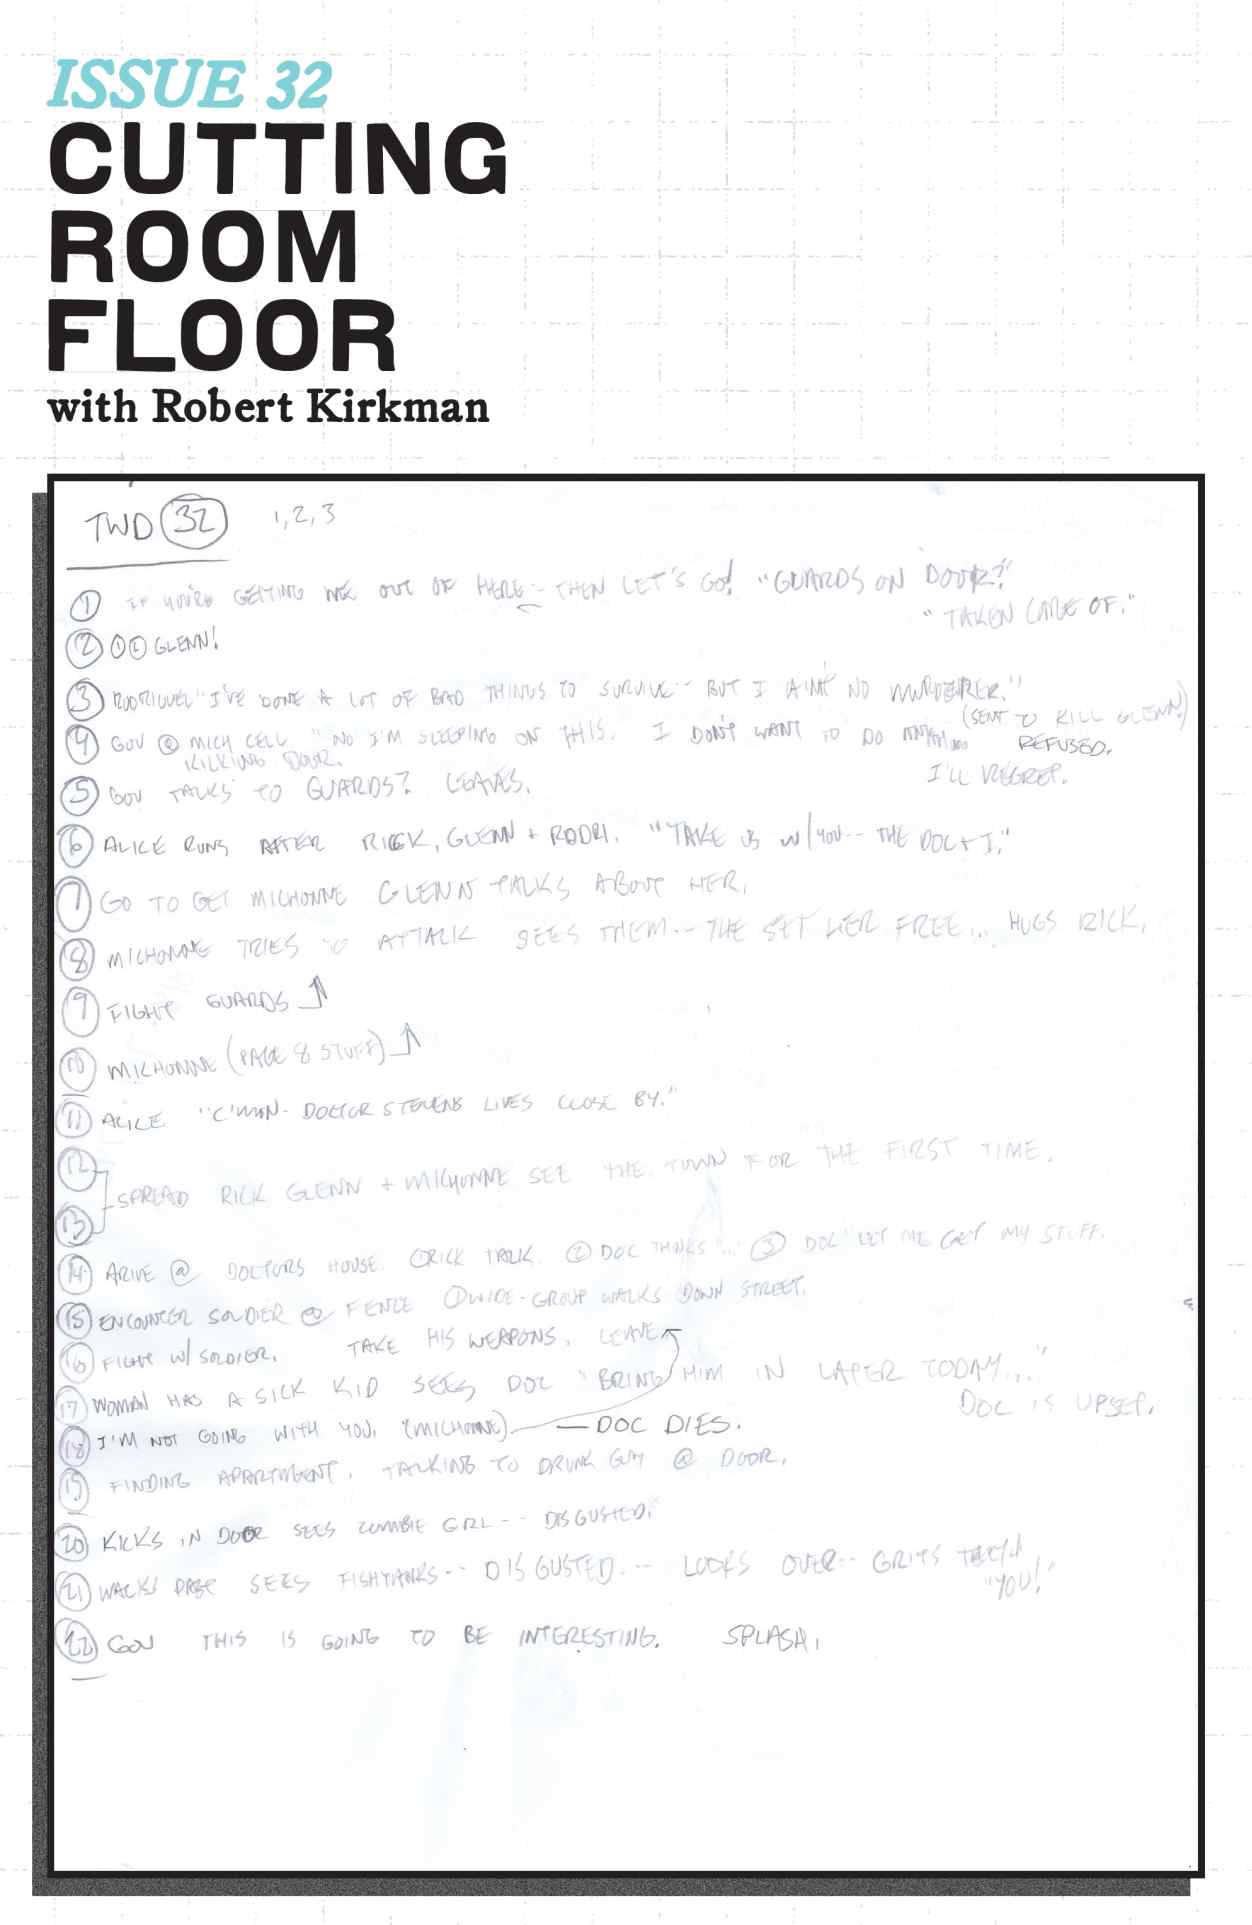 ISSUE 32
CUTTING
ROOM
FLOOR
with Robert Kirkman
TWD 32 1, 2, 3
1 IF YOU'RE GETTING ME OUT OF HERE-- THEN LET'S GO! "GUARDS ON DOOR?"
"TAKEN CARE OF."
2 GLENN!
3 "I'VE DONE A LOT OF BAD THINGS TO SURVIVE-- BUT I AINT NO MURDERER."
(SENT TO KILL GLENN)
4 GOV @ MICH CELL "NO I'M SLEEPING ON THIS. I DON'T WANT TO DO REFUSED.
KICKING DOOR. I'LL REGRET.
5 GOV TALKS TO GUARDS? LEAVES.
6 ALICE RUNS AFTER RICK, GLENN + RODRI. "TAKE US W/YOU-- THE DOC + I."
7 GO TO GET MICHONNE GLENN TALKS ABOUT HER.
8 MICHONNE TRIES TO ATTACK SEES THEM-- THE SET HER FREE... HUGS RICK.
9 FIGHT GUARDS
10 MICHONNE (PAGE 8 STUFF)
11 ALICE "C'MON- DOCTOR STEVENS LIVES CLOSE BY."
12
SPREAD RICK GLENN + MICHONNE SEE THE TOWN FOR THE FIRST TIME.
13
14 ARIVE @ DOCTORS HOUSE. 1 RICK TALK. 2 DOC THINKS "..." 3 DOC "LET ME GET MY STUFF.
15 ENCOUNTER SOLDIER @ FENCE 1 WIDE-GROUP WALKS DOWN STREET.
16 FIGHT W/ SOLDIER. TAKE HIS WEAPONS. LEAVE
17 WOMAN HAS A SICK KID SEES DOC "BRING HIM IN LATER TODAY..."
DOC IS UPSET.
18 I'M NOT GOING WITH YOU. (MICHONNE) — DOC DIES.
19 FINDING APARTMENT. TALKING TO DRUNK GUY @ DOOR.
20 KICKS IN DOOR SEES ZOMBIE GIRL-- DISGUSTED.
21 WALKS PAST SEES FISHTANKS-- DISGUSTED.-- LOOKS OVER-- GRITS TEETH
"YOU!"
22 GOV THIS IS GOING TO BE INTERESTING. SPLASH.